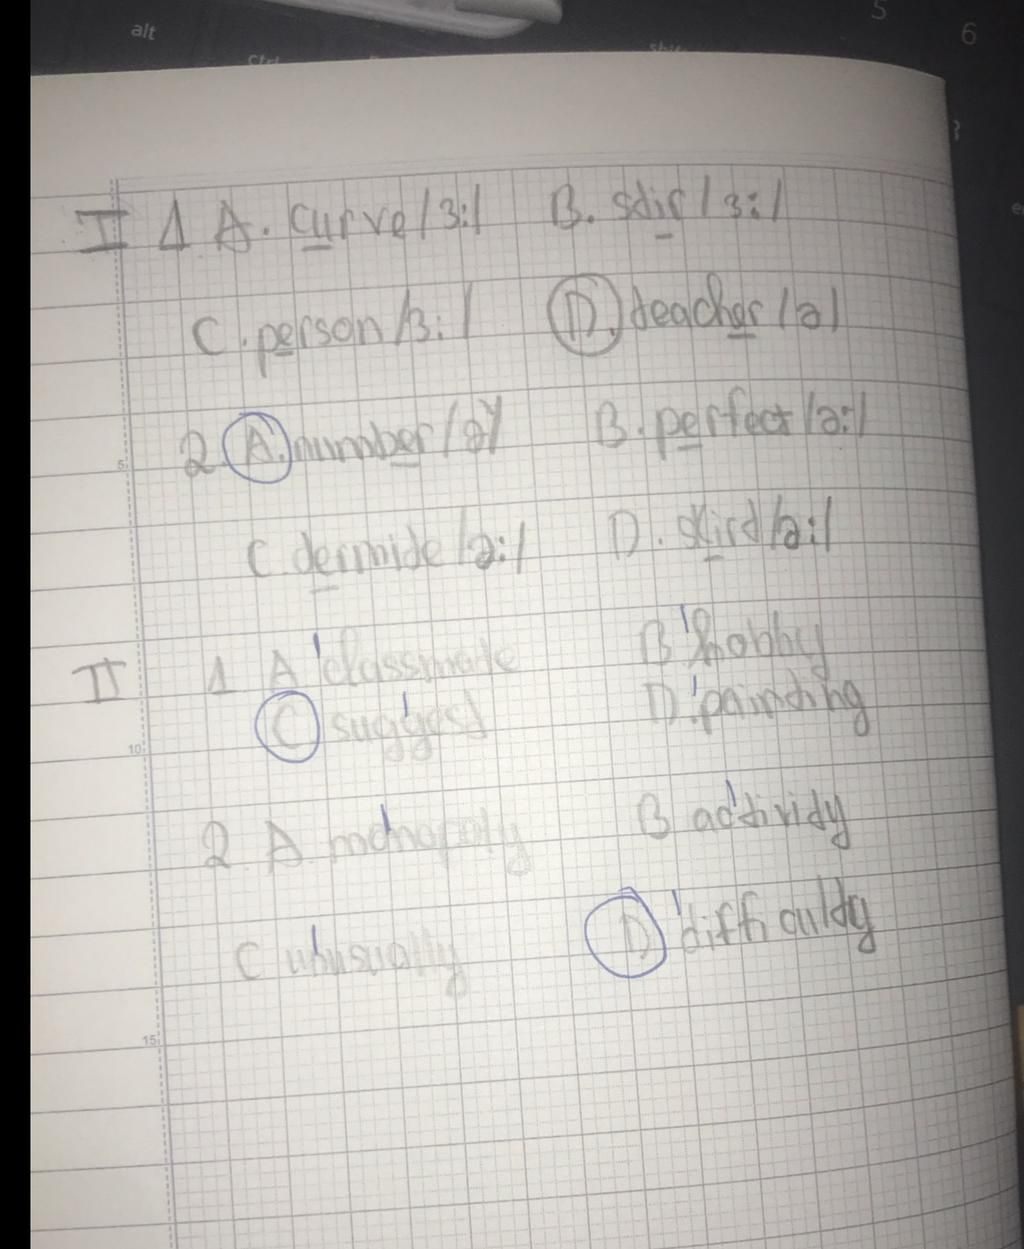 alt
Ctrl
Shift
5
6
I 1 A. curve /3:/ B. stir /3:/
C. person /3:/ D. teacher /ə/
2 A. number /ə/ B. perfect /ə:/
5
C. termite /ə:/ D. skirt /ə:/
II 1 A 'classmate B 'hobby
C su'ggest D. 'painting
10
2 A mo'nopoly B ac'tivity
C un'usually D 'difficulty
15